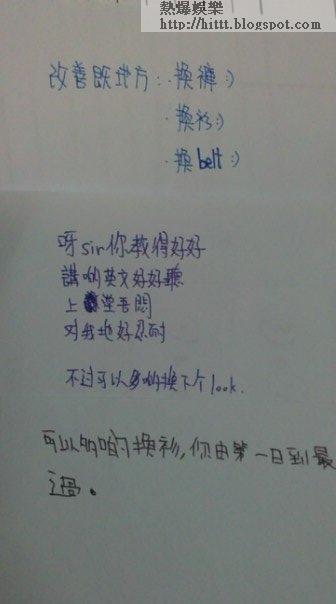 熱爆娛樂
http://hittt.blogspot.com
改善既地方:.換褲:)
.換衫:)
.換belt:)
呀sir你教得好好
講啲英文好好聽
上堂吾悶
对我地好忍耐
不过可以多啲换下个look.
可以多啲的換衫,你由第一日到最
過。